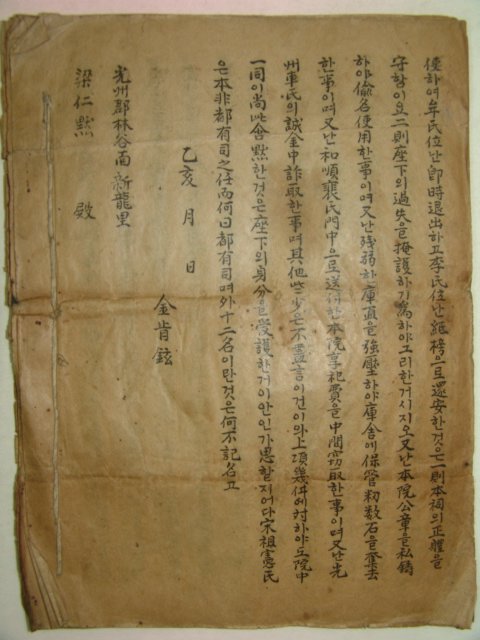 使하여牟氏位난卽時退出하고李氏位난紙榜으로還安한것은一則本祠의正體을
守함이요二則座下의過失을掩護하기爲하야그리한거시지오又난本院公章을私鑄
하야偸名使用한事이며又난殘弱한庫直을強壓하야庫舍에保管籾数石을奪去
한事이며又난和順裵氏門中으로送付한本院享祀費을中間窃取한事이며又난光
州車氏의誠金中詐取한事며其他些少은不盡言이건이와上項幾件에対하야도院中
一同이尚此含黙한것은座下의身分을愛護한거이안인가思할지어다宋祖憲氏
은本非都有司之任而何曰都有司며外十二名이란것은何不記名고
乙亥 月 日
金肯鉉
光州郡林谷面 新龍里
梁仁黙 殿